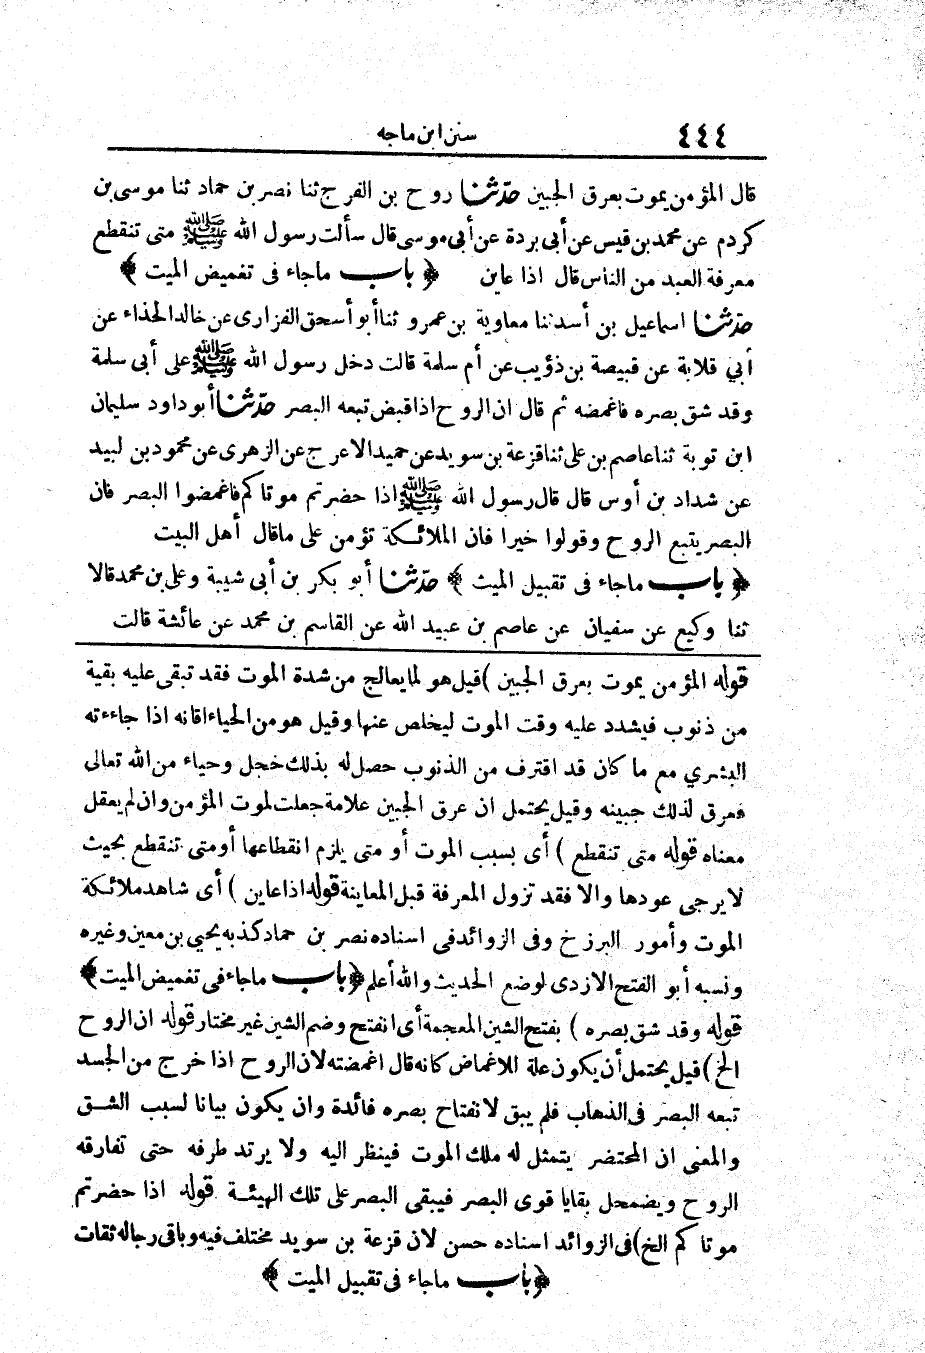 ٤٤٤
سنن ابن ماجه
قال المؤمن يموت بعرق الجبين حدّثنا روح بن الفرج ثنا نصر بن حماد ثنا موسى بن
كردم عن محمد بن قيس عن أبى بردة عن أبى موسى قال سألت رسول الله ﷺ متى تنقطع
معرفة العبد من الناس قال اذا عاين ﴿ باب ماجاء فى تغميض الميت ﴾
حدّثنا اسماعيل بن أسد ثنا معاوية بن عمرو ثنا أبو أسحق الفزارى عن خالد الحذاء عن
أبي قلابة عن قبيصة بن ذؤيب عن أم سلمة قالت دخل رسول الله ﷺ على أبى سلمة
وقد شق بصره فاغمضه ثم قال ان الروح اذا قبض تبعه البصر حدّثنا أبو داود سليمان
ابن توبة ثنا عاصم بن على ثنا قزعة بن سويد عن حميد الاعرج عن الزهرى عن محمود بن لبيد
عن شداد بن أوس قال قال رسول الله ﷺ اذا حضرتم موتاكم فاغمضوا البصر فان
البصر يتبع الروح وقولوا خيرا فان الملائكة تؤمن على ماقال أهل البيت
﴿ باب ماجاء فى تقبيل الميت ﴾ حدّثنا أبو بكر بن أبى شيبة وعلى بن محمد قالا
ثنا وكيع عن سفيان عن عاصم بن عبيد الله عن القاسم بن محمد عن عائشة قالت
قوله المؤمن يموت بعرق الجبين ) قيل هو لما يعالج من شدة الموت فقد تبقى عليه بقية
من ذنوب فيشدد عليه وقت الموت ليخلص عنها وقيل هو من الحياء اقانه اذا جاءته
البشري مع ما كان قد اقترف من الذنوب حصل له بذلك خجل وحياء من الله تعالى
فعرق لذلك جبينه وقيل يحتمل ان عرق الجبين علامة جعلت لموت المؤمن وان لم يعقل
معناه قوله متى تنقطع ) أى بسبب الموت أو متى يلزم انقطاعها أو متى تنقطع بحيث
لا يرجى عودها والا فقد تزول المعرفة قبل المعاينة قوله اذا عاين ) أى شاهد ملائكة
الموت وأمور البرزخ وفى الزوائد فى اسناده نصر بن حماد كذبه يحيى بن معين وغيره
ونسبه أبو الفتح الازدى لوضع الحديث والله أعلم ﴿ باب ماجاء فى تغميض الميت ﴾
قوله وقد شق بصره ) بفتح الشين المعجمة أى انفتح وضم الشين غير مختار قوله ان الروح
الخ ) قيل يحتمل أن يكون علة للاغماض كانه قال اغمضته لان الروح اذا خرج من الجسد
تبعه البصر فى الذهاب فلم يبق لانفتاح بصره فائدة وان يكون بيانا لسبب الشق
والمعنى ان المحتضر يتمثل له ملك الموت فينظر اليه ولا يرتد طرفه حتى تفارقه
الروح ويضمحل بقايا قوى البصر فيبقى البصر على تلك الهيئة قوله اذا حضرتم
موتاكم الخ ) فى الزوائد اسناده حسن لان قزعة بن سويد مختلف فيه وباقى رجاله ثقات
﴿ باب ماجاء فى تقبيل الميت ﴾